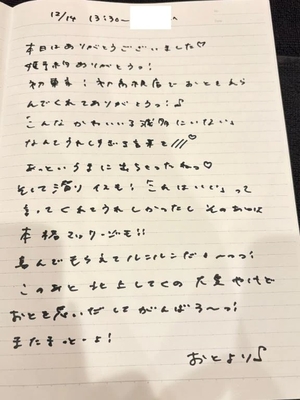 12/14 13:30~
本日はありがとうございました♡
姫予約ありがとうっ!
初電車!初高級店でおとをえら
んでくれてありがとうっ!♪
こんなかわいい子滅多にいない。
なんてうれしすぎる言葉を///
あっというまに出ちゃったねっ♡
そして潜りイスも!「これはいい」って
言ってくれてうれしかったし そのあとは
本格マッサージも!!
喜んでもらえてルンルンだぁ~っっ!
このあと 北上してくの 大変やけど
おとを思いだして がんばろ~っ!
またまっと~よ!
おとより♪